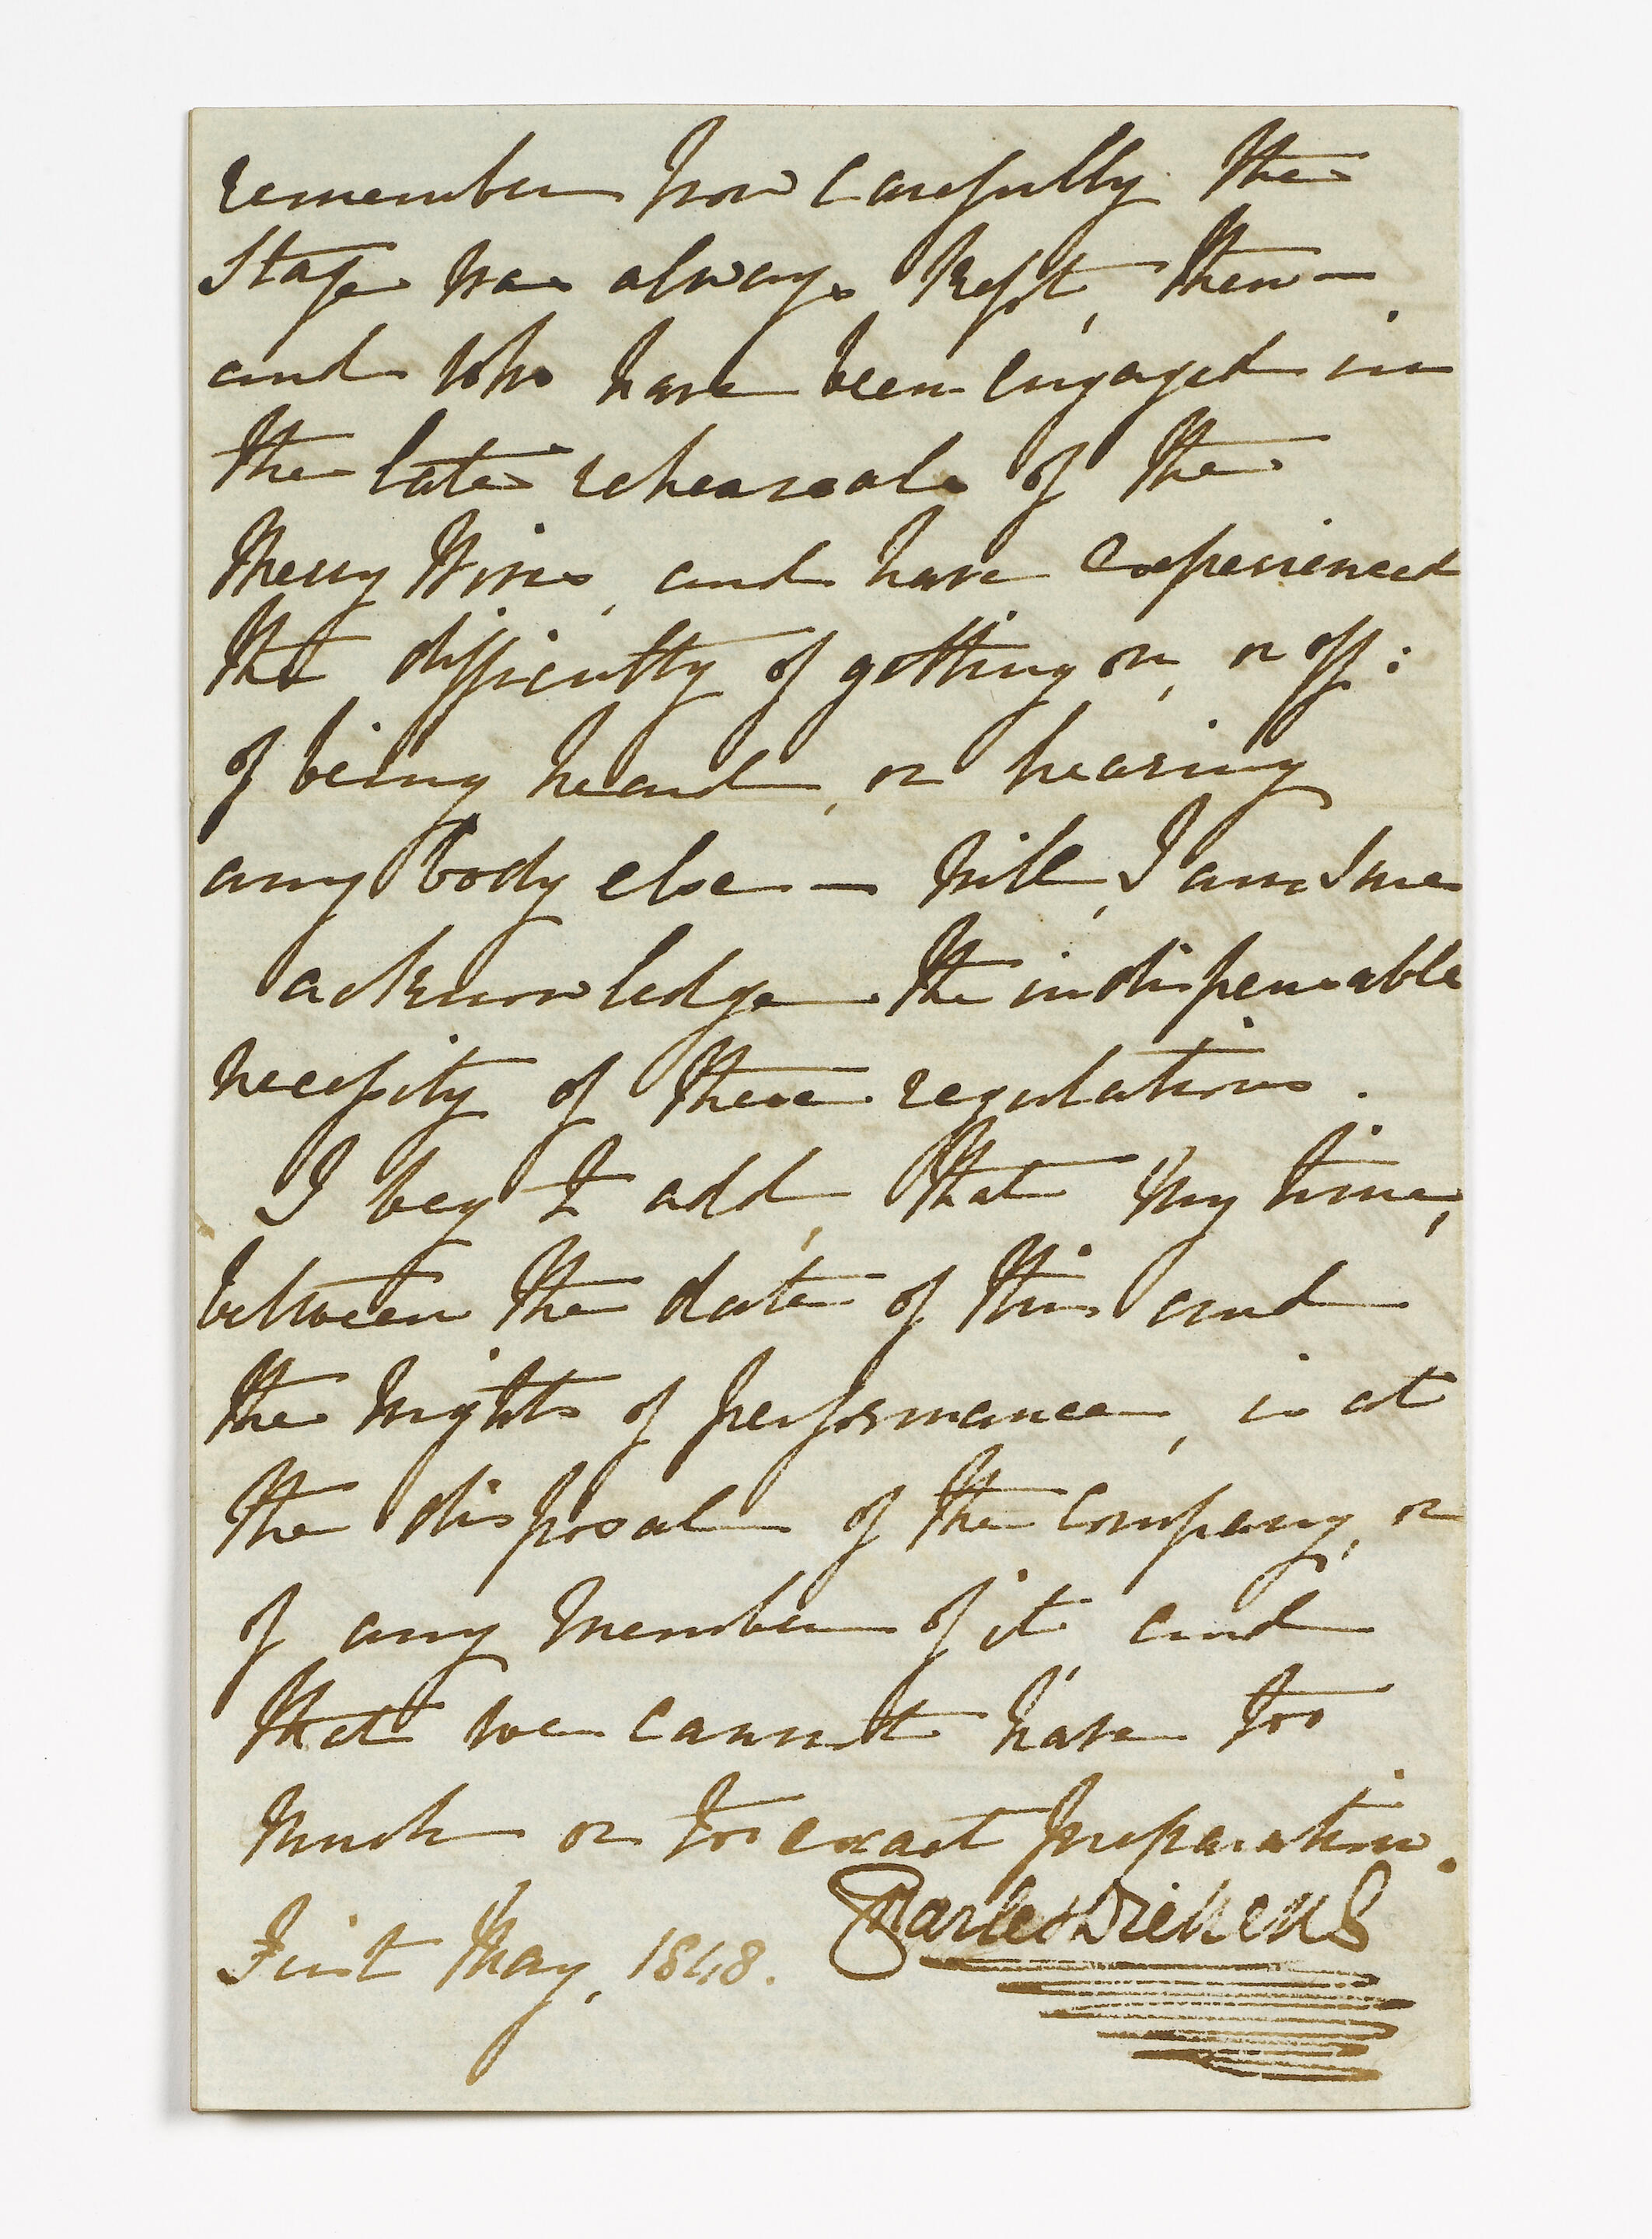 remember how carefully the
Stage was always kept, then —
and who have been engaged in
the late rehearsals of the
Merry Wives, and have experienced
the difficulty of getting on, or off:
of being heard, or hearing
any body else — will, I am sure
acknowledge the indispensable
necessity of these regulations.
I beg to add, that my time,
between the date of this and
the nights of performance, is at
the disposal of the Company, or
of any member of it, and
that we cannot have too
much or too exact preparation.
Charles Dickens
First May, 1848.